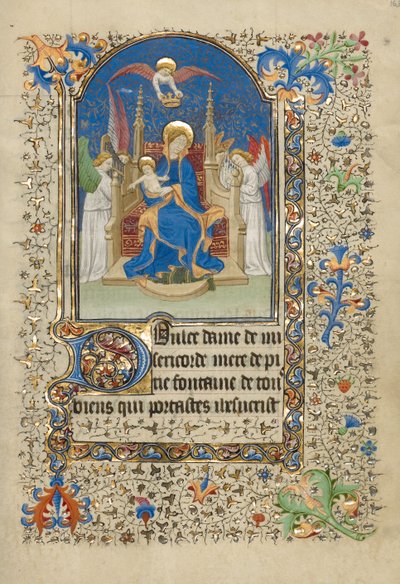 Dulce dame de mi
sericorde mere de pi
tie fontaine de tou
biens qui portastes ihesucrist